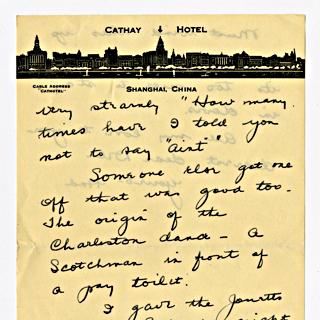 CATHAY HOTEL
CABLE ADDRESS
"CATHOTEL"
SHANGHAI, CHINA
very strarnly "How many
times have I told you
not to say "aint""
Someone else got one
off that was good too.
The origin of the
Charleston dance - A
Scotchman in front of
a pay toilet.
I gave the